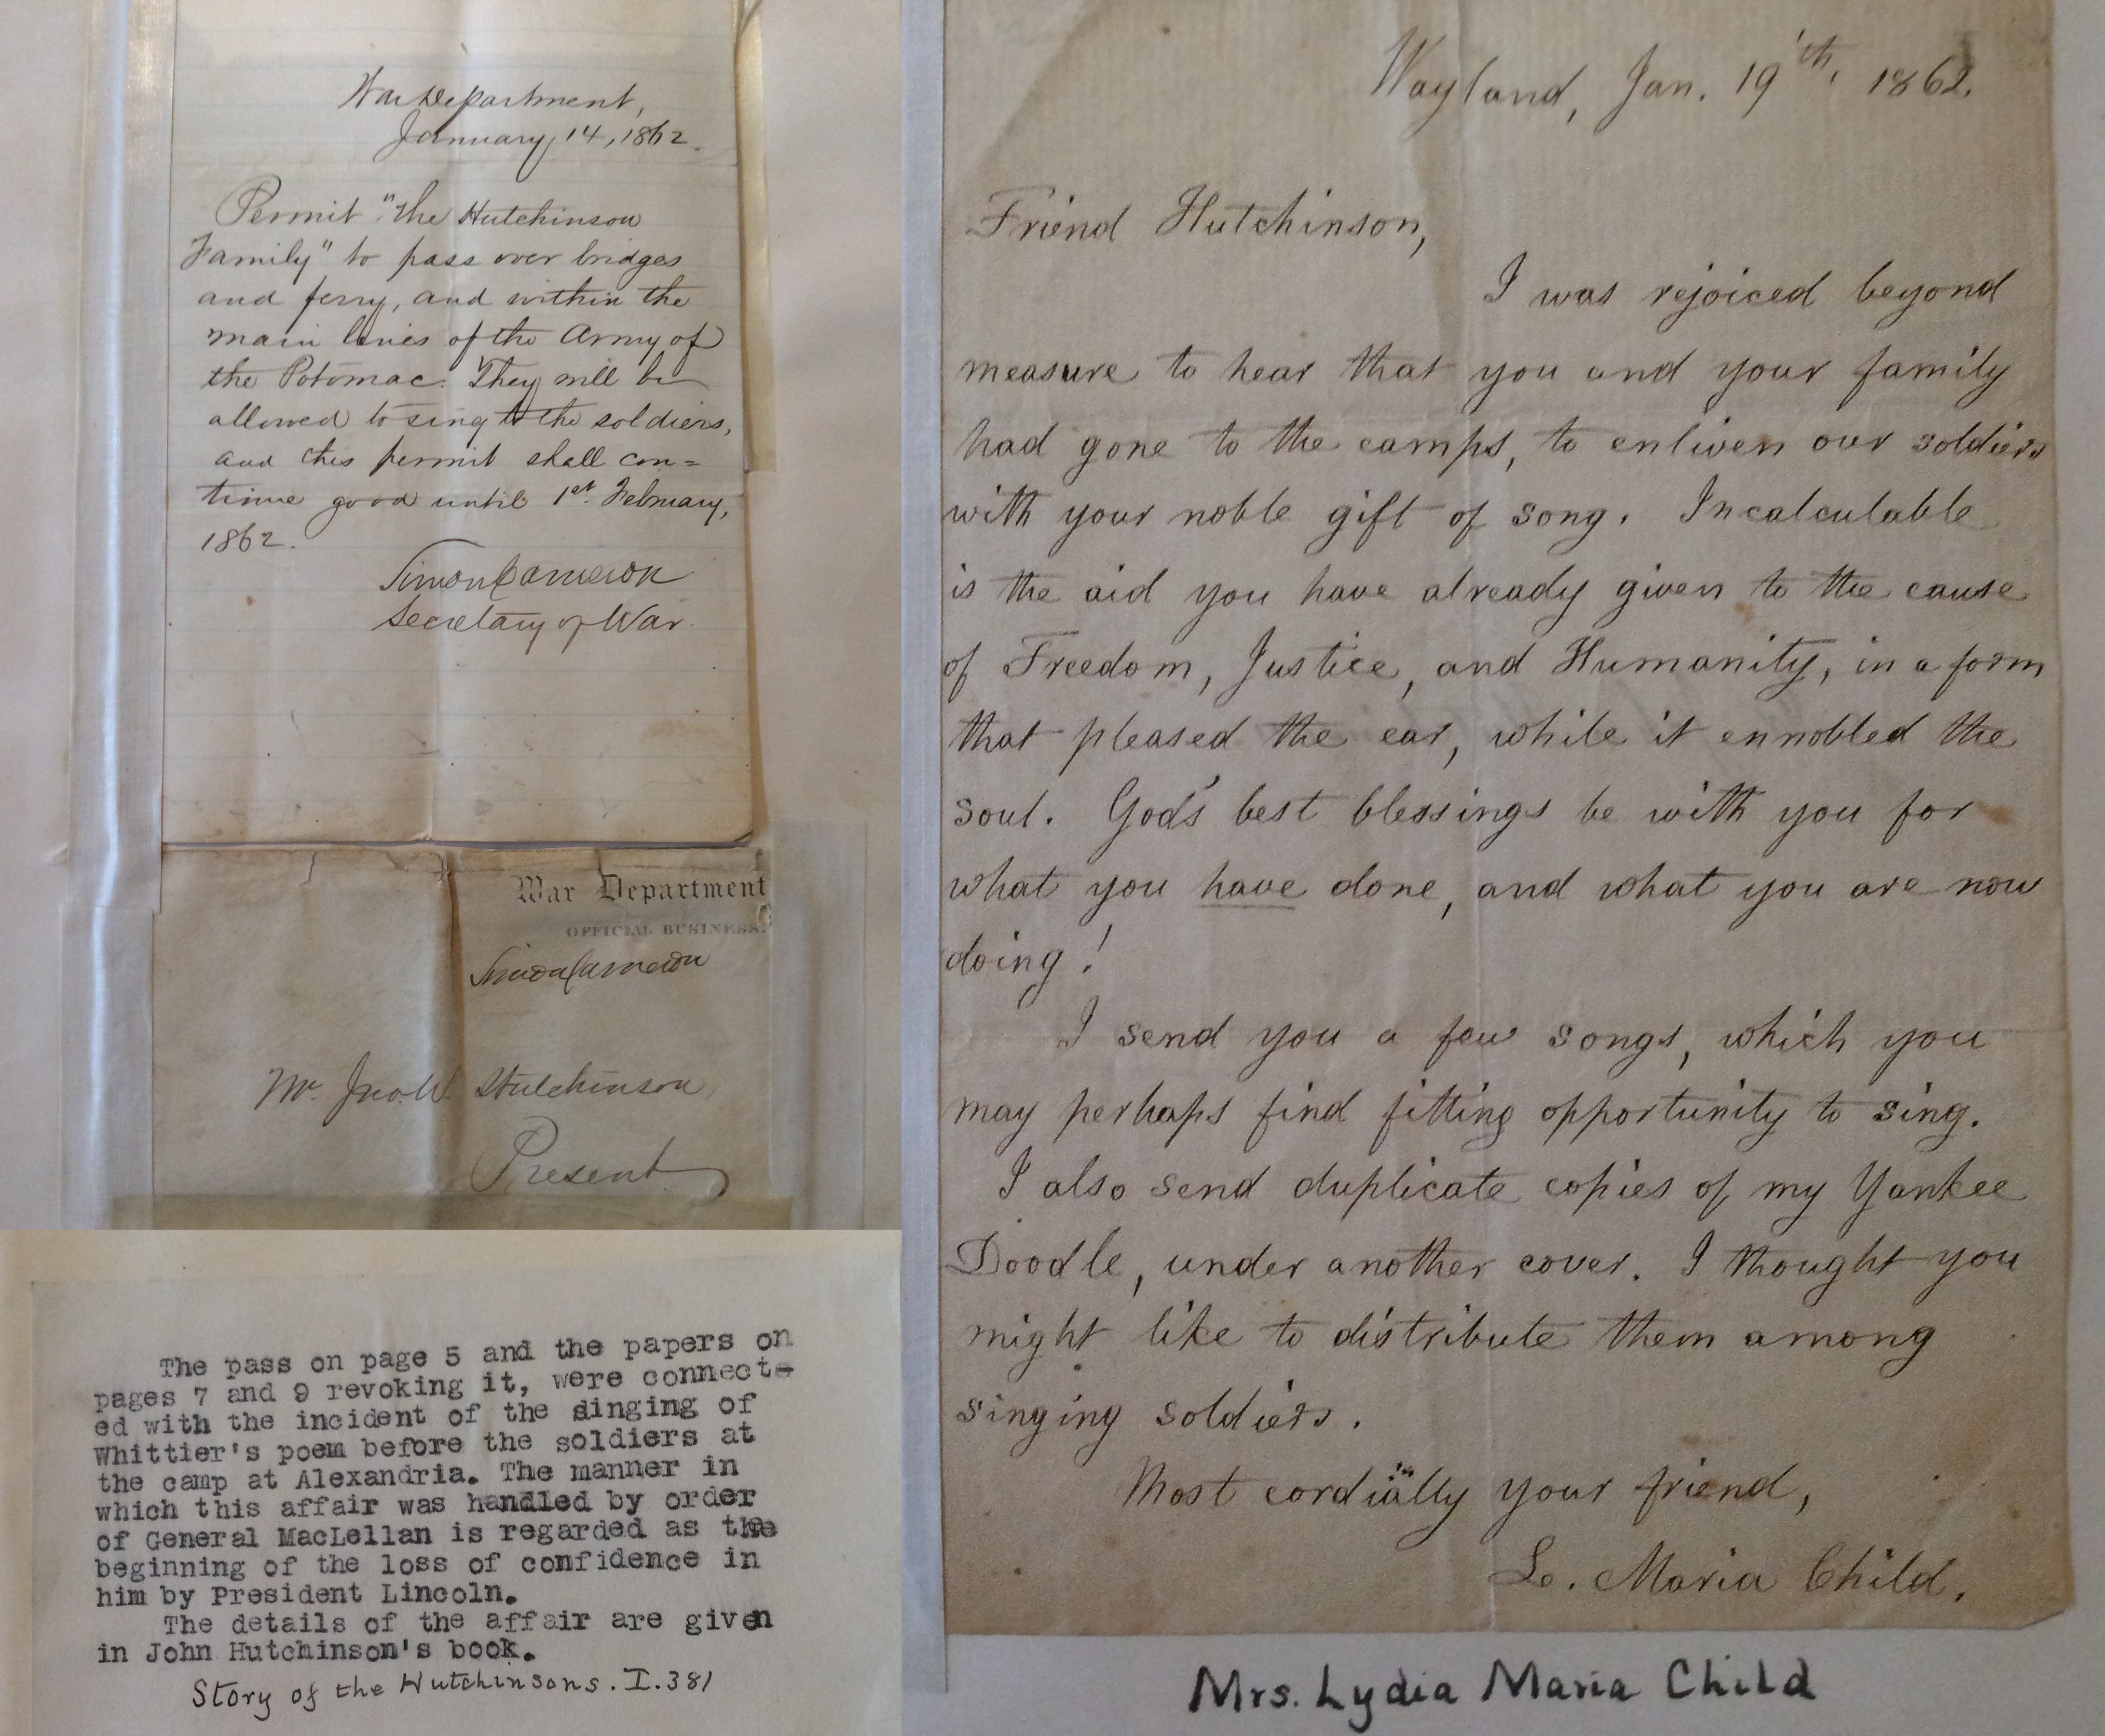 War Department,
January 14, 1862.
Permit "the Hutchinson
Family" to pass over bridges
and ferry, and within the
main lines of the Army of
the Potomac. They will be
allowed to sing to the soldiers,
and this permit shall con=
tinue good until 1st February,
1862.
Simon Cameron
Secretary of War.
War Department
OFFICIAL BUSINESS.
Simon Cameron
Mr. Jno. W. Hutchinson
Present
The pass on page 5 and the papers on
pages 7 and 9 revoking it, were connect-
ed with the incident of the singing of
Whittier's poem before the soldiers at
the camp at Alexandria. The manner in
which this affair was handled by order
of General MacLellan is regarded as the
beginning of the loss of confidence in
him by President Lincoln.
The details of the affair are given
in John Hutchinson's book.
Story of the Hutchinsons. I. 381
Wayland, Jan. 19th, 1862.
Friend Hutchinson,
I was rejoiced beyond
measure to hear that you and your family
had gone to the camps, to enliven our soldiers
with your noble gift of song. Incalculable
is the aid you have already given to the cause
of Freedom, Justice, and Humanity, in a form
that pleased the ear, while it ennobled the
soul. God's best blessings be with you for
what you have done, and what you are now
doing!
I send you a few songs, which you
may perhaps find fitting opportunity to sing.
I also send duplicate copies of my Yankee
Doodle, under another cover. I thought you
might like to distribute them among
singing soldiers.
Most cordially your friend,
L. Maria Child.
Mrs. Lydia Maria Child